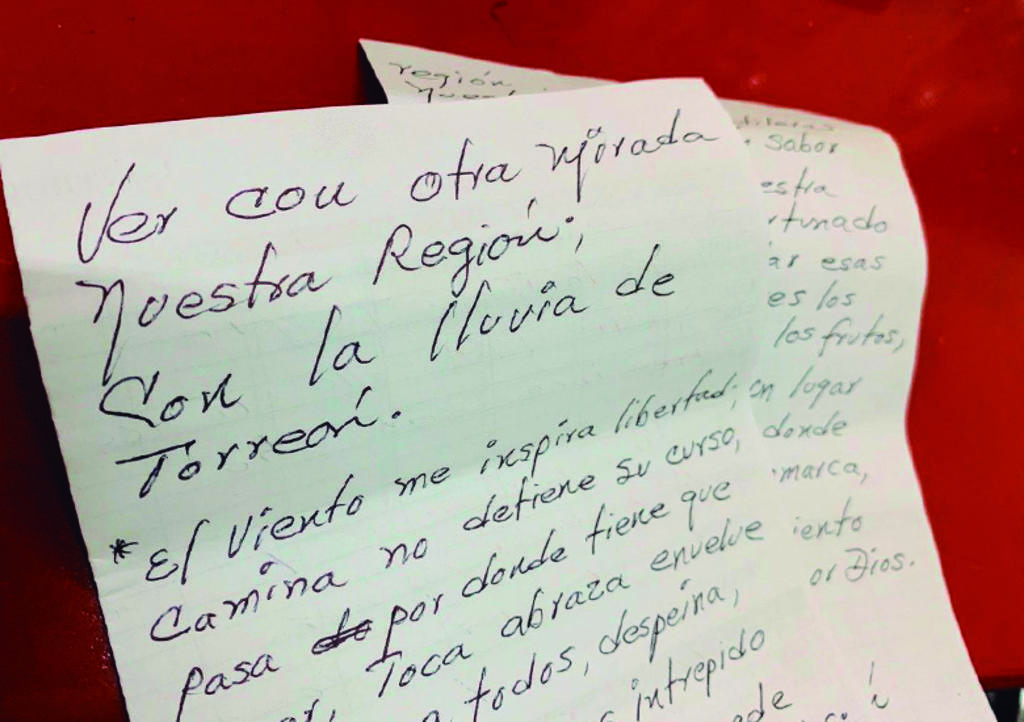 Ver con otra mirada
nuestra Región;
Con la lluvia de
Torreón.
* El Viento me inspira libertad;
Camina no detiene su curso,
pasa do por donde tiene que
Toca abraza envuelve
todos, despeina,
intrepido
región
sabor
esas
es los
los frutos,
en lugar
donde
marca,
or Dios.